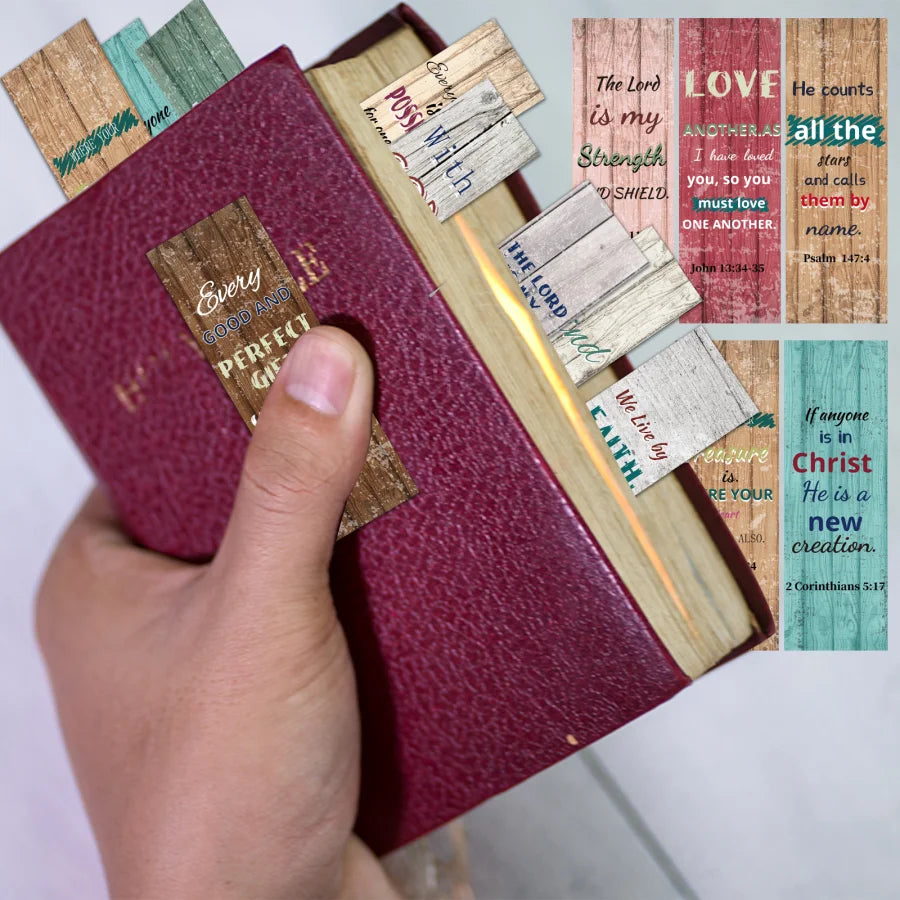 WHERE YOUR
yone
Every
is
POSS
for one
With
THE LORD
MY
nd
We Live by
FAITH.
Every
GOOD AND
PERFECT
GIF
The Lord
is my
Strength
ND SHIELD.
LOVE
ANOTHER.AS
I have loved
you, so you
must love
ONE ANOTHER.
John 13:34-35
He counts
all the
stars
and calls
them by
name.
Psalm 147:4
easure
is.
RE YOUR
eart
ALSO.
If anyone
is in
Christ
He is a
new
creation.
2 Corinthians 5:17